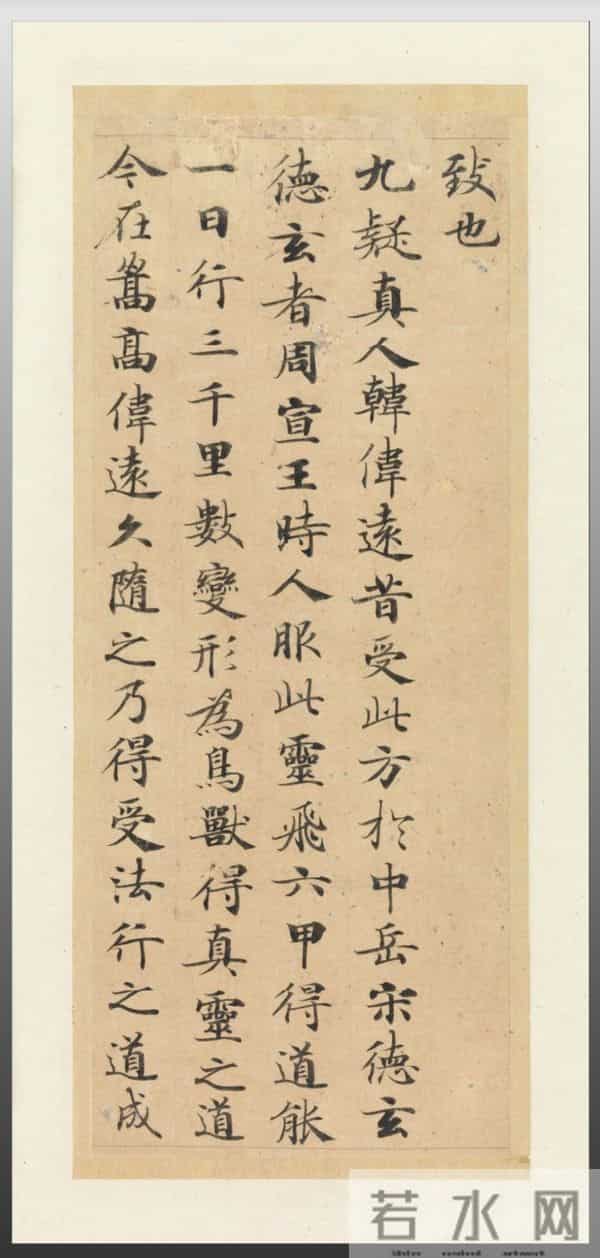 致也
九疑真人韓偉遠昔受此方於中岳宋德玄
德玄者周宣王時人服此靈飛六甲得道能
一日行三千里數變形為鳥獸得真靈之道
今在嵩高偉遠久隨之乃得受法行之道成
若水网